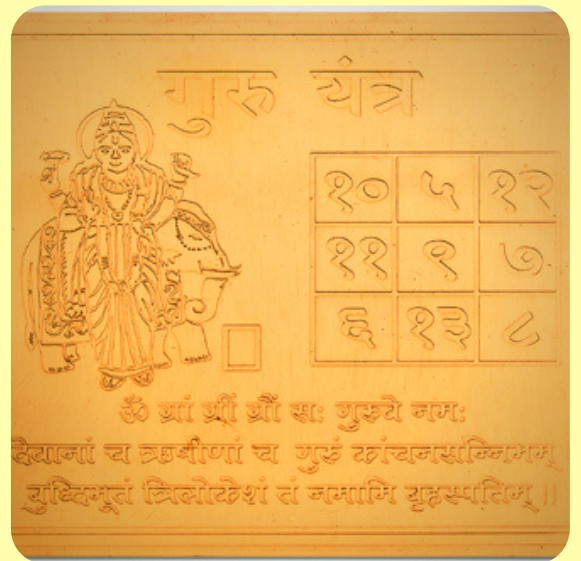 गुरु यंत्र
१० ५ १२
११ ९ ७
६ १३ ८
ॐ ग्रां ग्रीं ग्रौं सः गुरुवे नमः
देवानां च ऋषीणां च गुरुं कांचनसन्निभम्
बुध्दिभूतं त्रिलोकेशं तं नमामि बृहस्पतिम् ॥